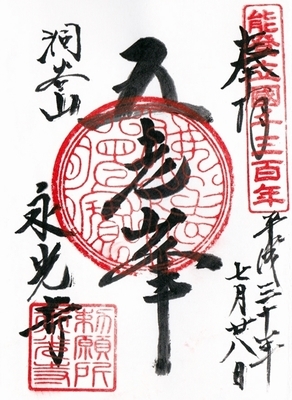 能登立国千三百年
奉拝
平成三十年
七月廿八日
五老峯
洞谷山
永光寺
勅願所